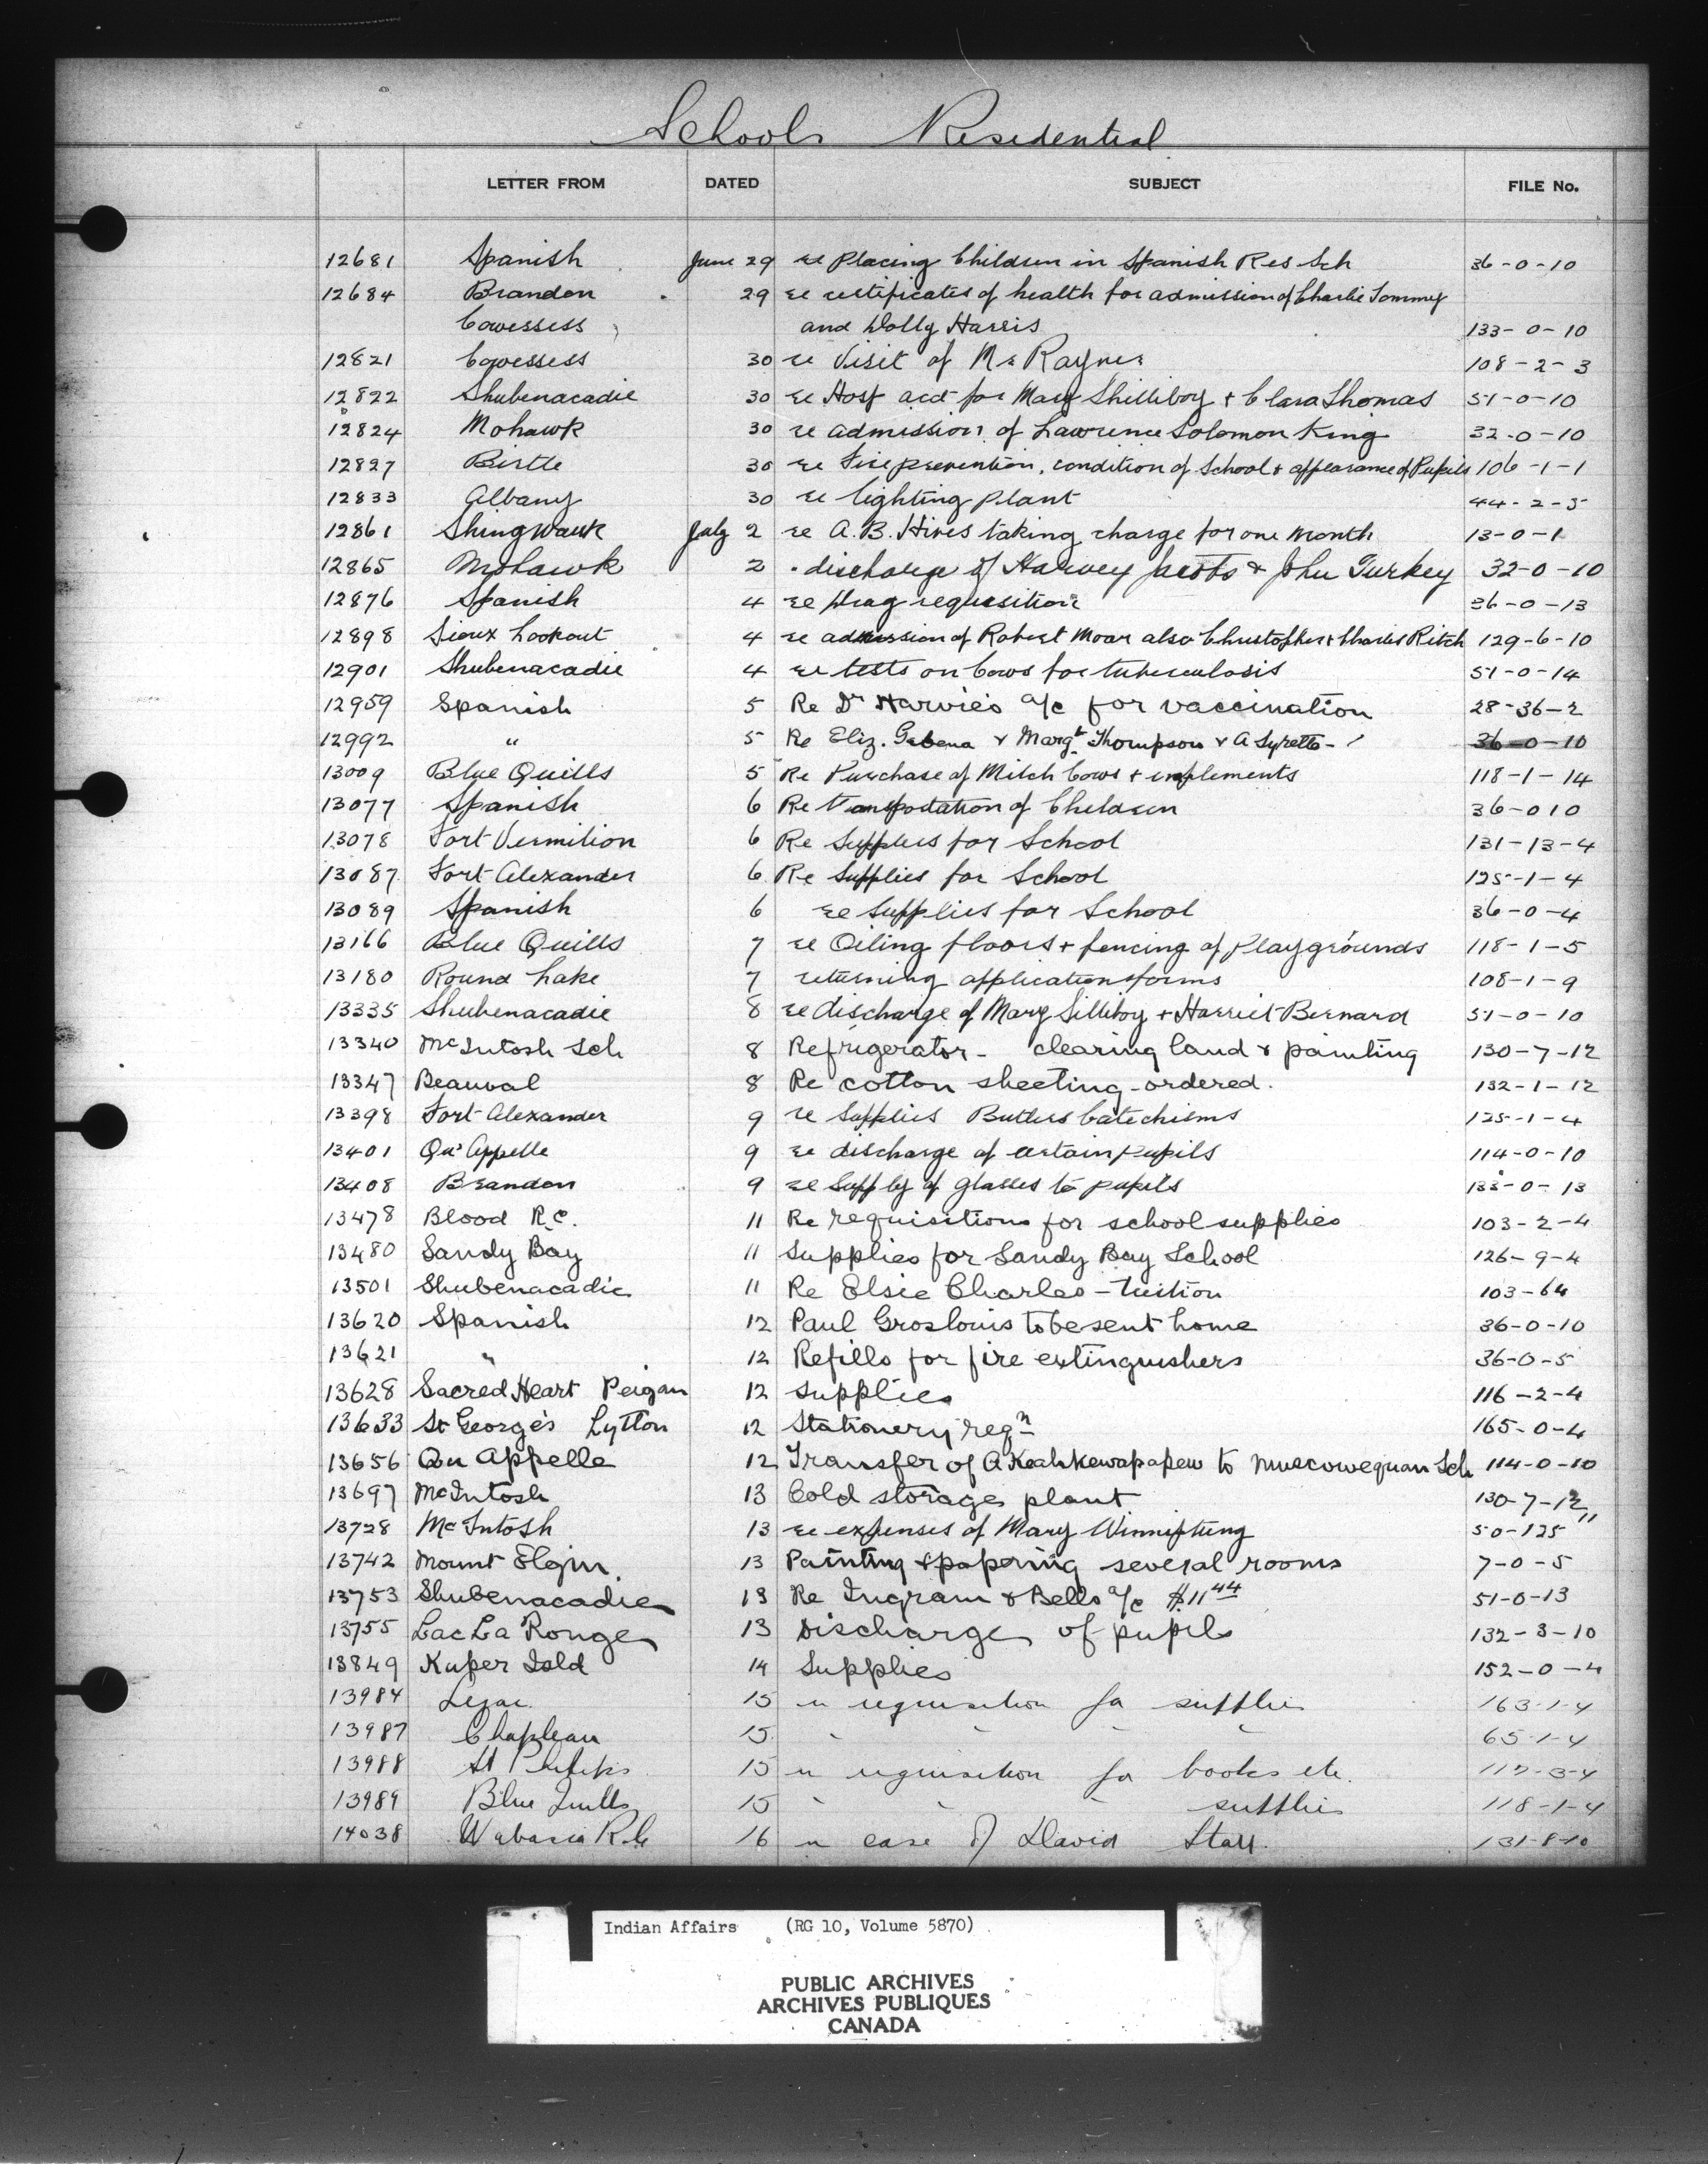 Schools Residential
LETTER FROM DATED SUBJECT FILE No.
12681 Spanish June 29 re placing Children in Spanish Res Sch 36-0-10
12684 Brandon 29 re certificates of health for admission of Charlie Tommy
Cowessess and Dolly Harris 133-0-10
12821 Cowessess 30 re Visit of Mr Rayner 108-2-3
12822 Shubenacadie 30 re Hosp acct for Mary Shilliboy + Clara Thomas 51-0-10
12824 Mohawk 30 re admission of Lawrence Solomon King 32-0-10
12827 Birtle 30 re Fire prevention, condition of School & appearance of Pupils 106-1-1
12833 Albany 30 re lighting plant 44-2-5
12861 Shingwauk July 2 re A.B. Hives taking charge for one month 13-0-1
12865 Mohawk 2 discharge of Harvey Jacobs & John Turkey 32-0-10
12876 Spanish 4 re Drag requisition 36-0-13
12898 Sioux Lookout 4 re admission of Robert Moar also Christopher & Charles Ritch 129-6-10
12901 Shubenacadie 4 re tests on Cows for tuberculosis 51-0-14
12959 Spanish 5 Re Dr Harvie's a/c for vaccination 28-36-2
12992 " 5 Re Eliz. & Margt Thompson & A Syrette 36-0-10
13009 Blue Quills 5 Re Purchase of Milch Cows + implements 118-1-14
13077 Spanish 6 Re Transportation of Children 36-0 10
13078 Fort Vermilion 6 Re Supplies for School 131-13-4
13087 Fort Alexander 6 Re Supplies for School 125-1-4
13089 Spanish 6 re Supplies for School 36-0-4
13166 Blue Quills 7 re Oiling floors + fencing of Playgrounds 118-1-5
13180 Round Lake 7 returning application forms 108-1-9
13335 Shubenacadie 8 re discharge of Mary Silliboy + Harriet Bernard 51-0-10
13340 McIntosh Sch 8 Refrigerator - clearing land & painting 130-7-12
13347 Beauval 8 Re cotton sheeting - ordered. 132-1-12
13398 Fort Alexander 9 re Supplies Butlers Catechisms 125-1-4
13401 Qu'Appelle 9 re discharge of certain pupils 114-0-10
13408 Brandon 9 re Supply of glasses to pupils 133-0-13
13478 Blood R.C. 11 Re requisitions for school supplies 103-2-4
13480 Sandy Bay 11 Supplies for Sandy Bay School 126-9-4
13501 Shubenacadie 11 Re Elsie Charles - tuition 103-64
13620 Spanish 12 Paul Groslouis to be sent home 36-0-10
13621 " 12 Refills for fire extinguishers 36-0-5
13628 Sacred Heart Peigan 12 Supplies 116-2-4
13633 St George's Lytton 12 Stationery reqn 165-0-4
13656 Qu Appelle 12 Transfer of A Keahkewapapew to Muscowequan Sch 114-0-10
13697 McIntosh 13 Cold storage plant 130-7-12
13728 McIntosh 13 re expenses of Mary 50-125 "
13742 Mount Elgin 13 Painting & papering several rooms 7-0-5
13753 Shubenacadie 13 Re Ingram & Bells a/c $11 44 51-0-13
13755 Lac La Ronge 13 Discharge of pupils 132-3-10
13849 Kuper Isld 14 Supplies 152-0-4
13984 Lejac 15 re requisition for supplies 163-1-4
13987 Chapleau 15 " " " " 65-1-4
13988 St Philips 15 re requisition for books etc. 117-3-4
13989 Blue Quills 15 " " " supplies 118-1-4
14038 Wabasca R.C 16 re case of David Starr 131-8-10
Indian Affairs (RG 10, Volume 5870)
PUBLIC ARCHIVES
ARCHIVES PUBLIQUES
CANADA